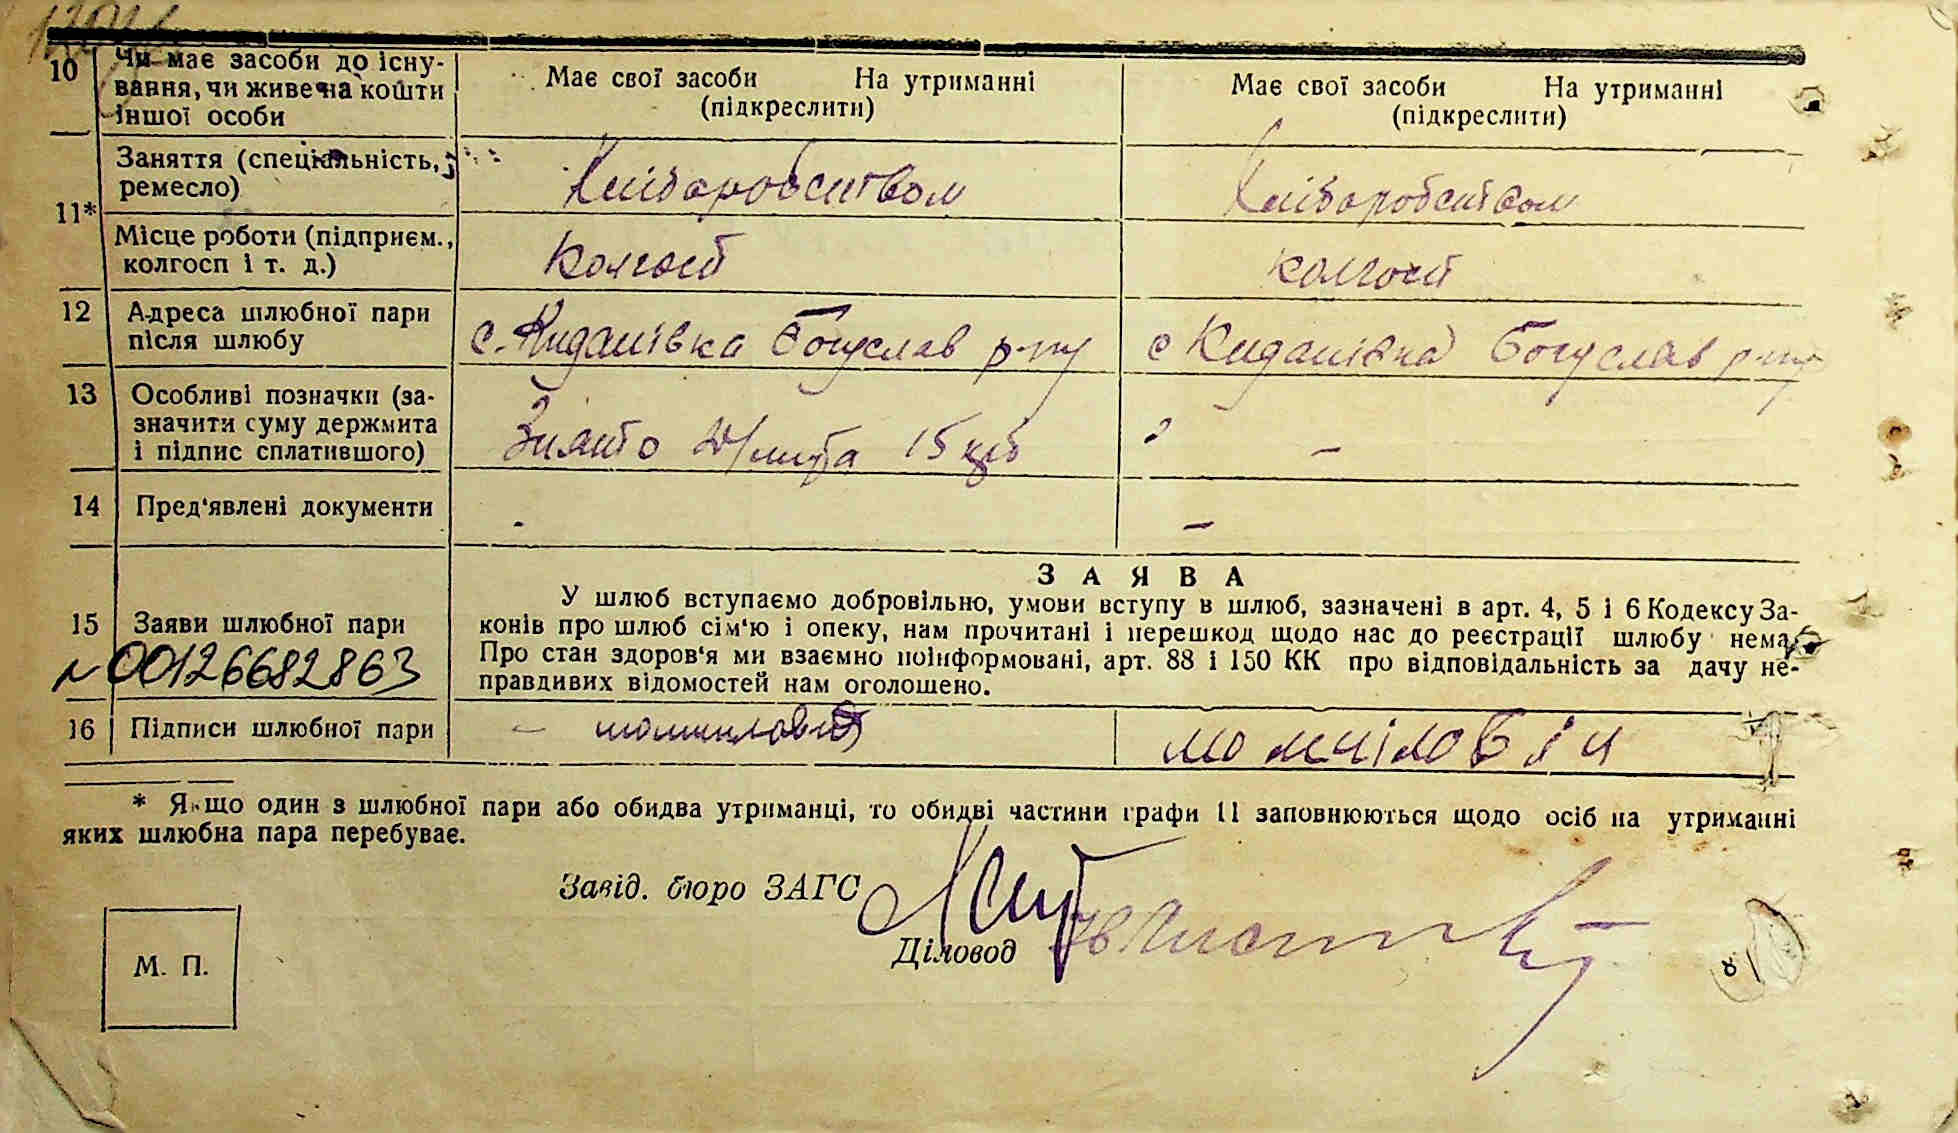 10 Чи має засоби до існу-
вання, чи живе на кошти
іншої особи
Має свої засоби На утриманні
(підкреслити)
Має свої засоби На утриманні
(підкреслити)
11*
Заняття (спеціяльність,
ремесло)
Хліборобством
Хліборобством
Місце роботи (підприєм.,
колгосп і т. д.)
Колгосп
колгосп
12 Адреса шлюбної пари
після шлюбу
с. Киданівка Богуслав р-ну
с Киданівка Богуслав р-ну
13 Особливі позначки (за-
значити суму держмита
і підпис сплатившого)
Знято д/мита 15 крб
–
14 Пред'явлені документи
-
–
15 Заяви шлюбної пари
N 00126682863
ЗАЯВА
У шлюб вступаємо добровільно, умови вступу в шлюб, зазначені в арт. 4, 5 і 6 Кодексу За-
конів про шлюб сім'ю і опеку, нам прочитані і перешкод щодо нас до реєстрації шлюбу нема.
Про стан здоров'я ми взаємно поінформовані, арт. 88 і 150 КК про відповідальність за дачу не-
правдивих відомостей нам оголошено.
16 Підписи шлюбної пари
момчіловіч
* Якщо один з шлюбної пари або обидва утриманці, то обидві частини графи 11 заповнюються щодо осіб на утриманні
яких шлюбна пара перебуває.
Завід. бюро ЗАГС
Діловод
М. П.